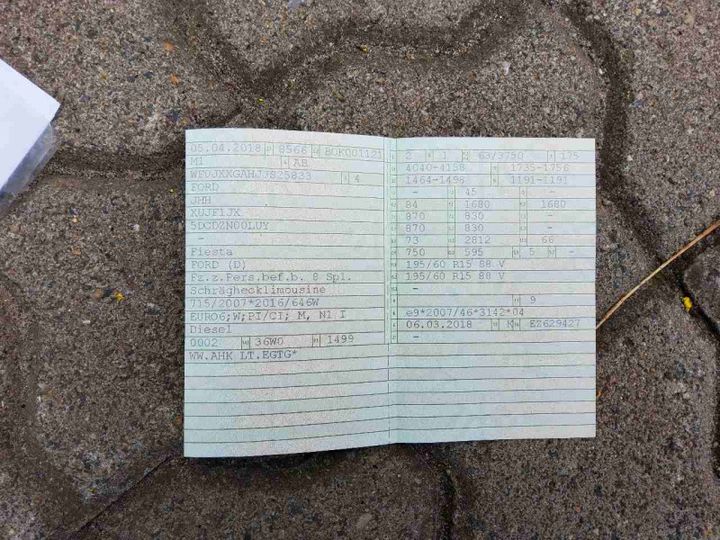 05.04.2018 8566 BOK001121
M1 AB
WF0JXXGAHJJS25833 4
FORD
JHH
XUJF1JX
5DCDZN00LUY
-
Fiesta
FORD (D)
Fz.z.Pers.bef.b. 8 Spl.
Schräghecklimousine
715/2007*2016/646W
EURO6;W;PI/CI; M, N1 I
Diesel
0002 36W0 1499
WW.AHK LT.EGTG*
2 1 63/3750 175
4040-4158 1735-1756
1464-1496 1191-1191
- 45 -
84 1680 1680
870 830 -
870 830 -
73 2812 66
750 595 5 -
195/60 R15 88 V
195/60 R15 88 V
-
- 9
e9*2007/46*3142*04
06.03.2018 K EZ629427
-